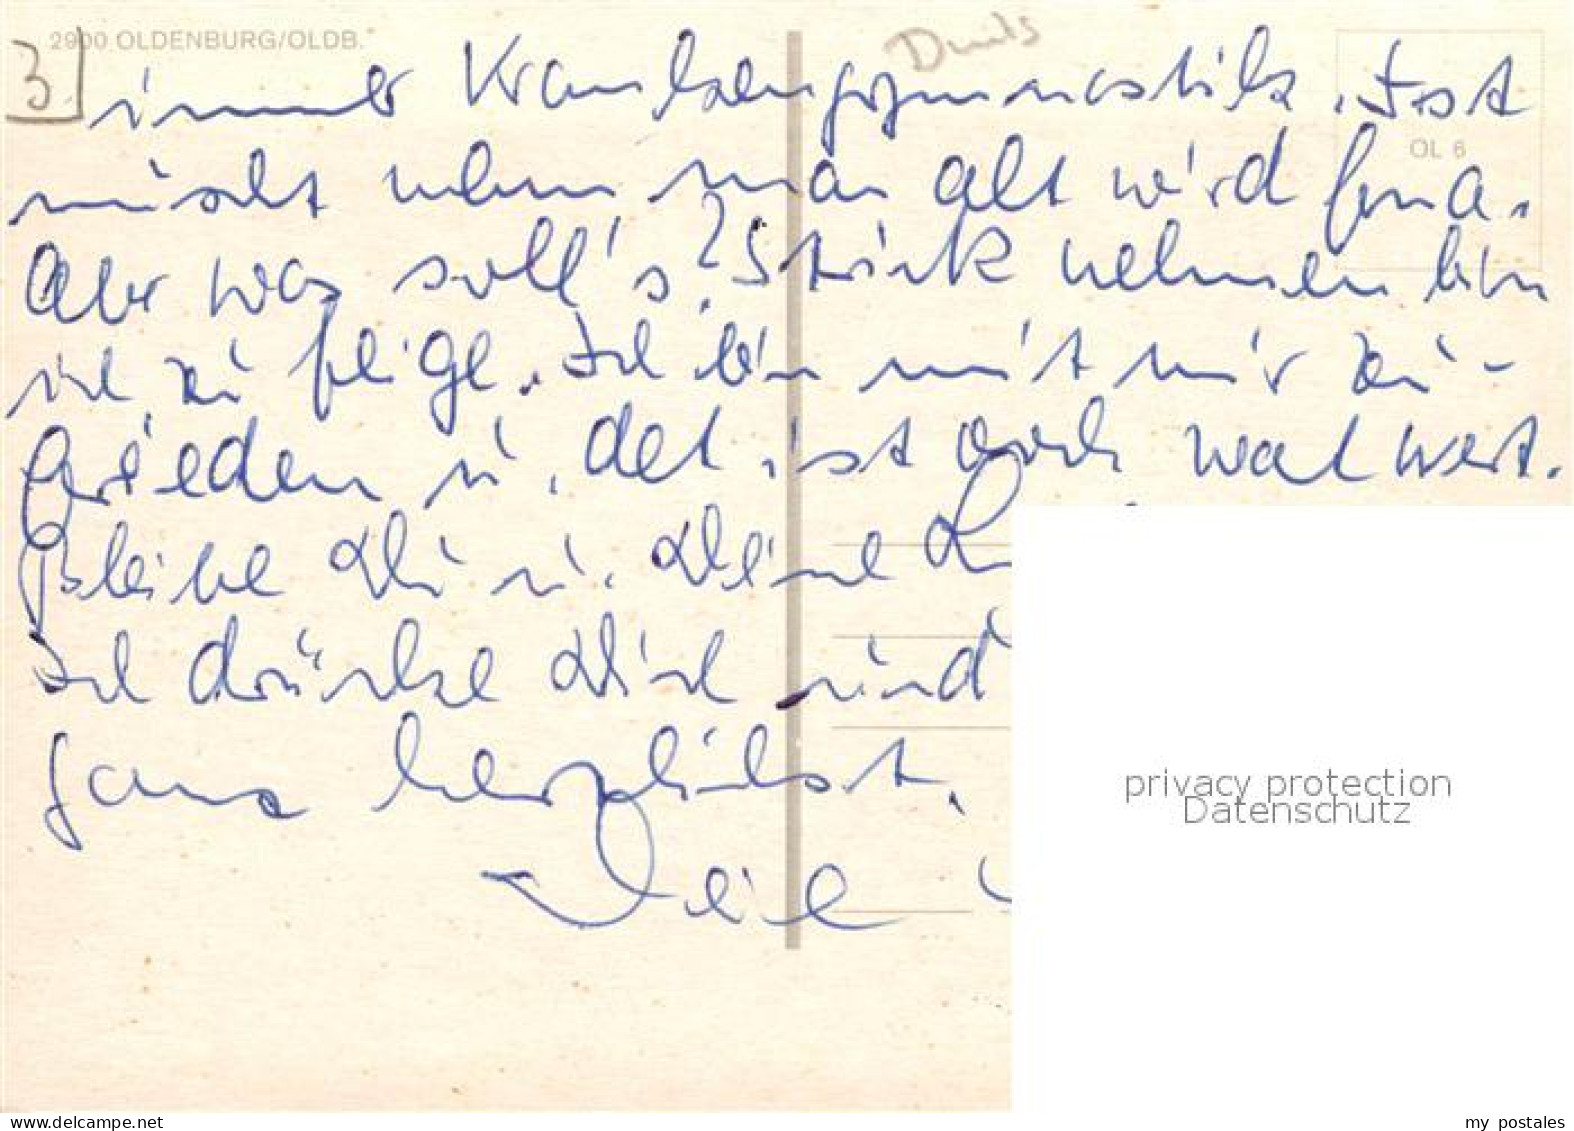 2900 OLDENBURG/OLDB.
Duits
3.
OL 6
immer Krankengymnastik. Ist
nischt wenn man alt wird
Aber was soll's? Strick nehmen bin
ich zu feige. Ich bin mit mir zu-
frieden u. det ist och wat wert.
Bleibe Du u. Deine
Ich drücke Dich und
ganz herzlichst,
Deine
privacy protection
Datenschutz
www.delcampe.net
my_postales